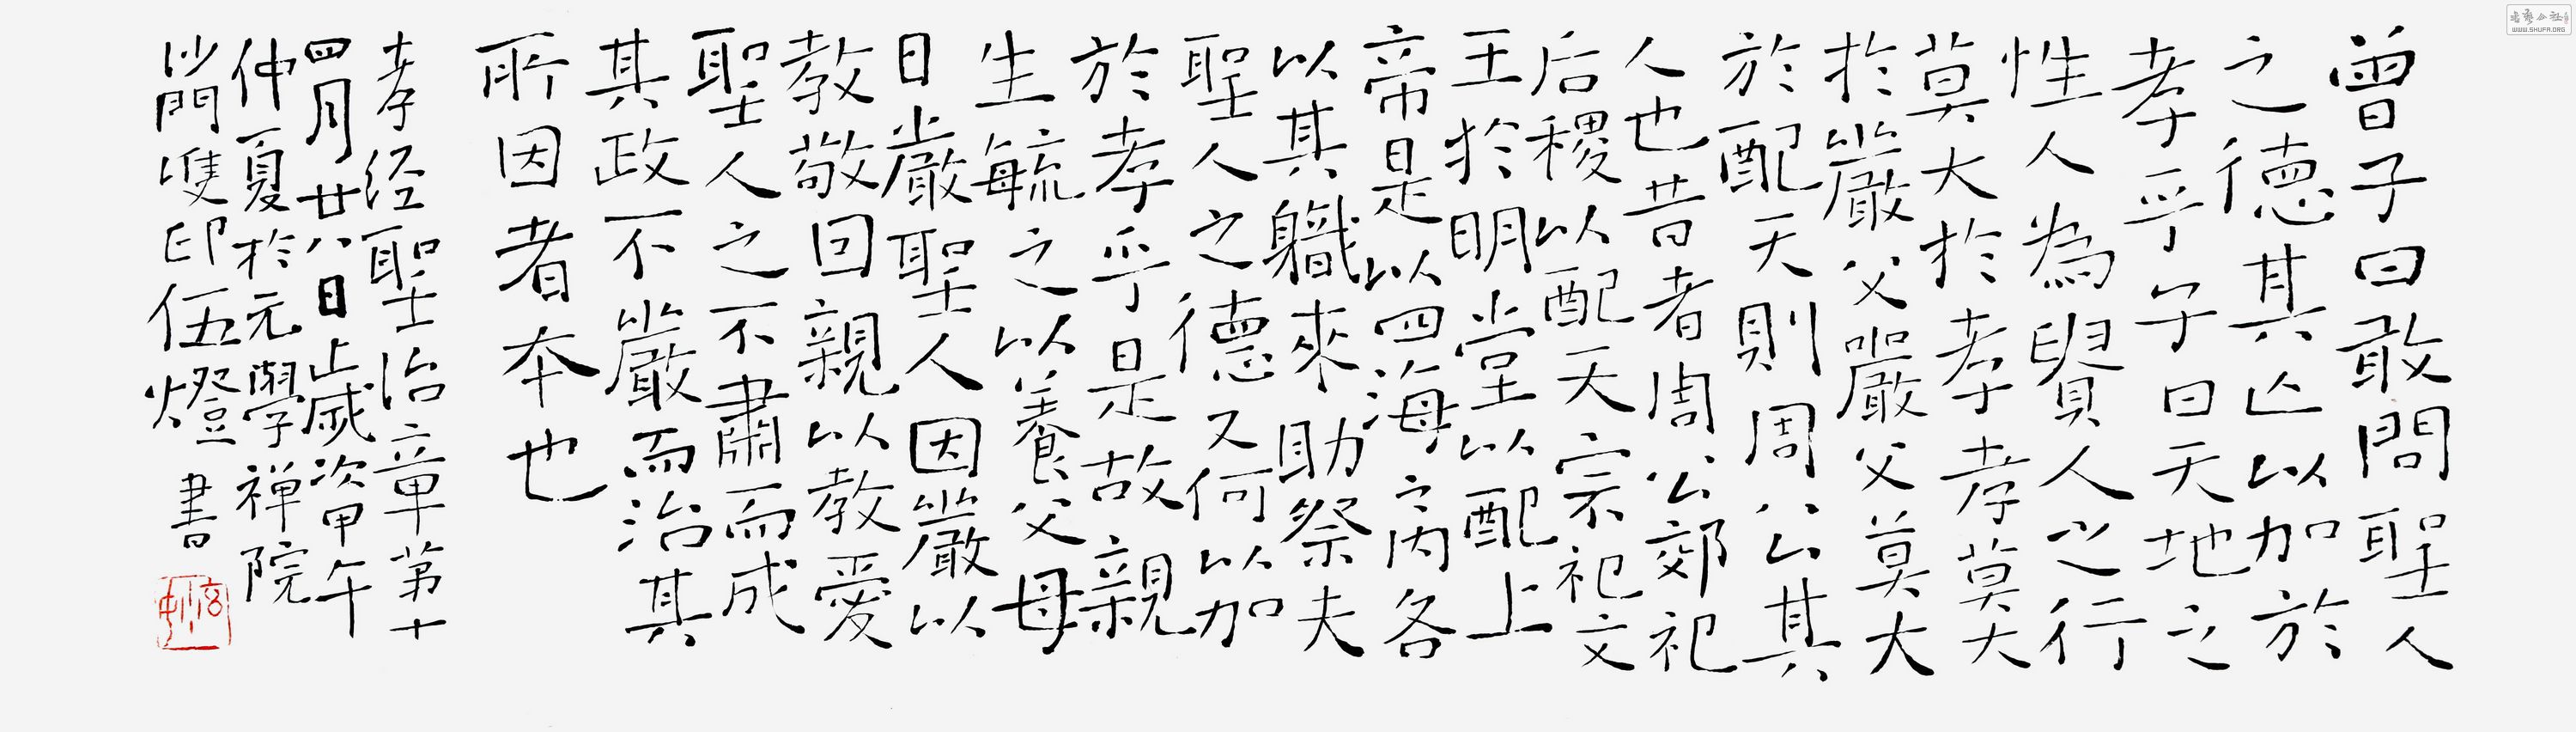 曾子曰敢問聖人
之德其亡以加於
孝乎子曰天地之
性人為貴人之行
莫大於孝孝莫大
於嚴父嚴父莫大
於配天則周公其
人也昔者周公郊祀
后稷以配天宗祀文
王於明堂以配上
帝是以四海之內各
以其職來助祭夫
聖人之德又何以加
於孝乎是故親
生毓之以養父母
日嚴聖人因嚴以
教敬因親以教愛
聖人之不肅而成
其政不嚴而治其
所因者本也
孝经聖治章第十
四月廿八日歲次甲午
仲夏於元學禅院
門雙印伍燈書
WWW.SHUFA.ORG